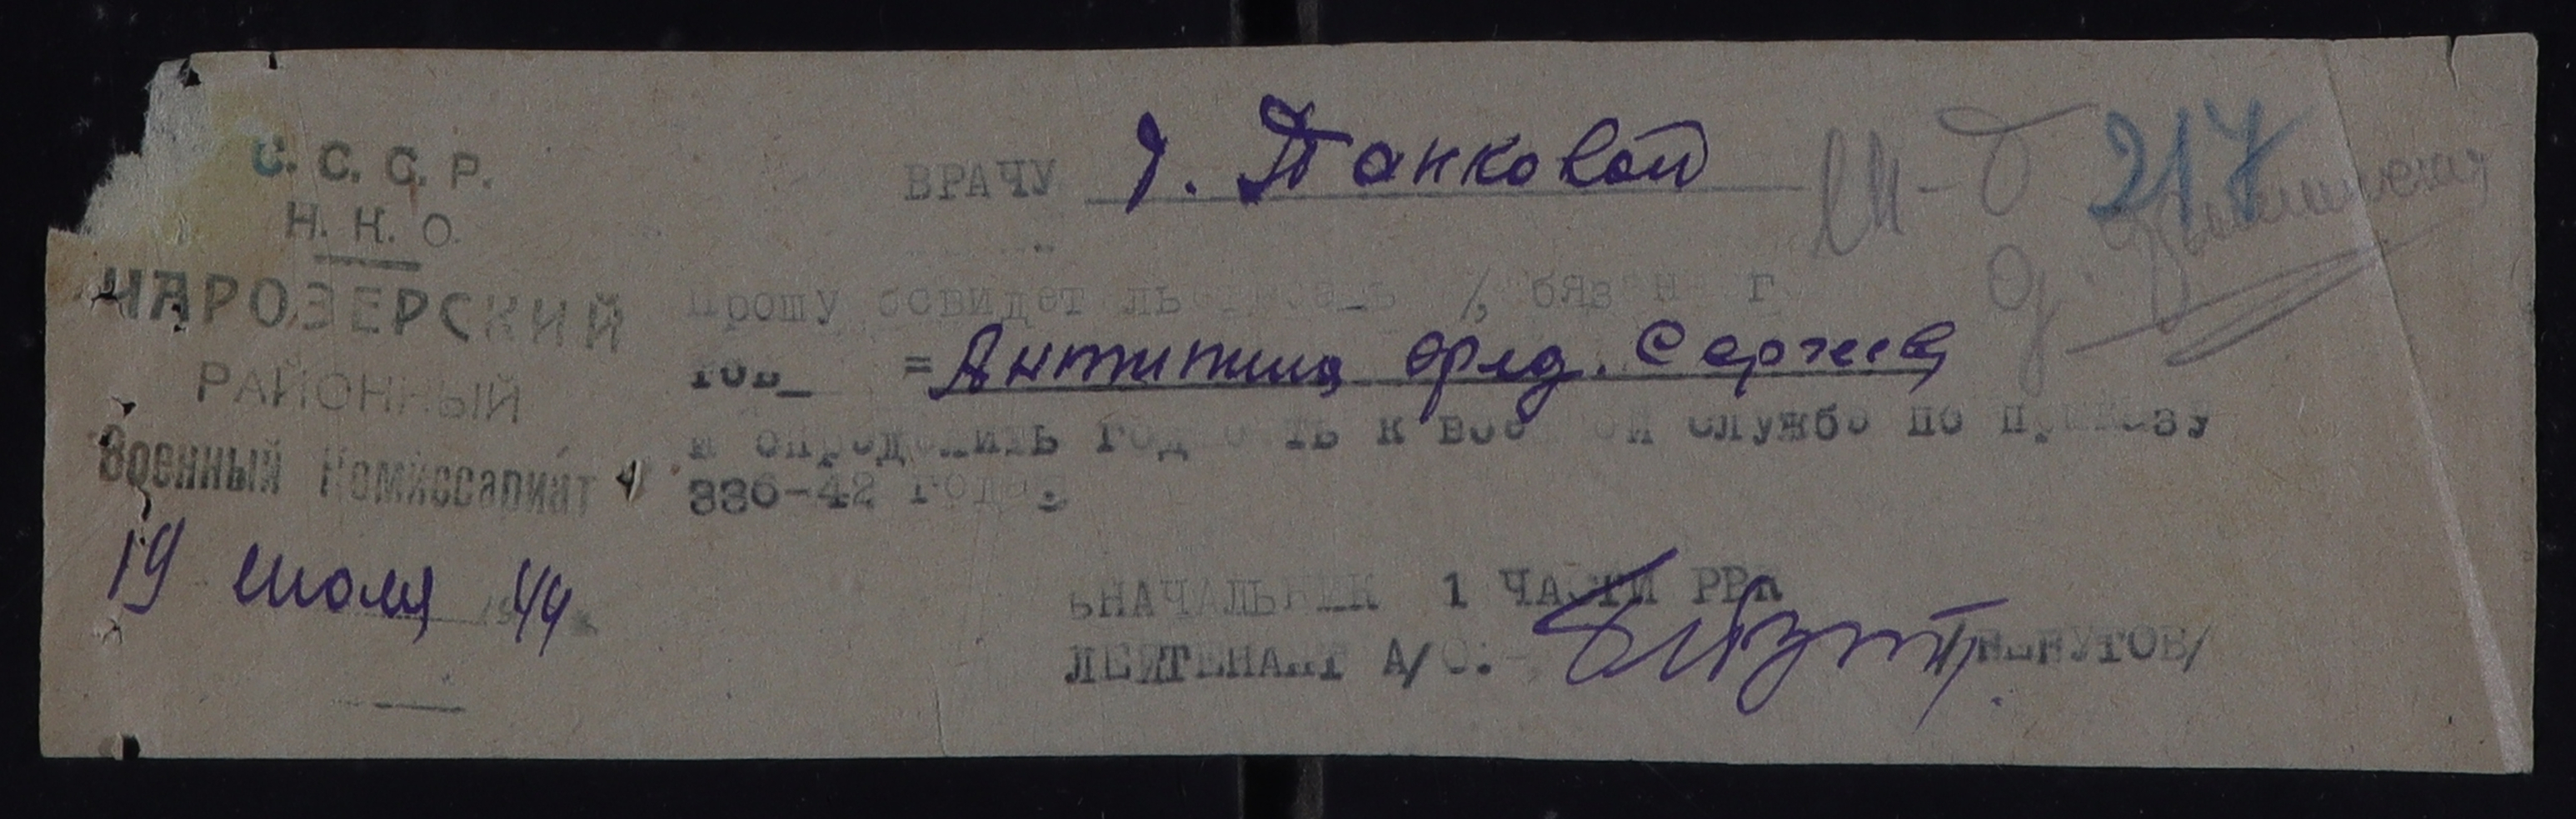 С. С. С. Р.
Н. К. О.
ЧАРОЗЕРСКИЙ
РАЙОННЫЙ
Военный Комиссариат
19 июля 44
ВРАЧУ т. Панковой
217
Прошу освидетельствовать в/обязанного
тов_ =Антипина Фред. Сергеев
и определить годность к военной службе по приказу
336-42 года
НАЧАЛЬНИК 1 ЧАСТИ РВК
ЛЕЙТЕНАНТ А/С:-